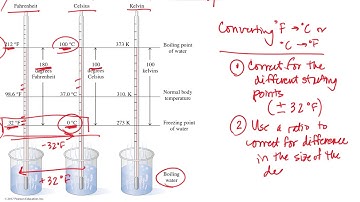 Fahrenheit Celsius Kelvin
212 °F 100 °C 373 K Boiling point
of water
180
degrees
Fahrenheit
100
degrees
Celsius
100
kelvins
98.6 °F 37.0 °C 310. K Normal body
temperature
32 °F 0 °C 273 K Freezing point
of water
-32°F
+32°F
Boiling
water
Converting °F → °C or
°C → °F
① Correct for the
different starting
points
(± 32 °F)
② Use a ratio to
correct for difference
in the size of the
de